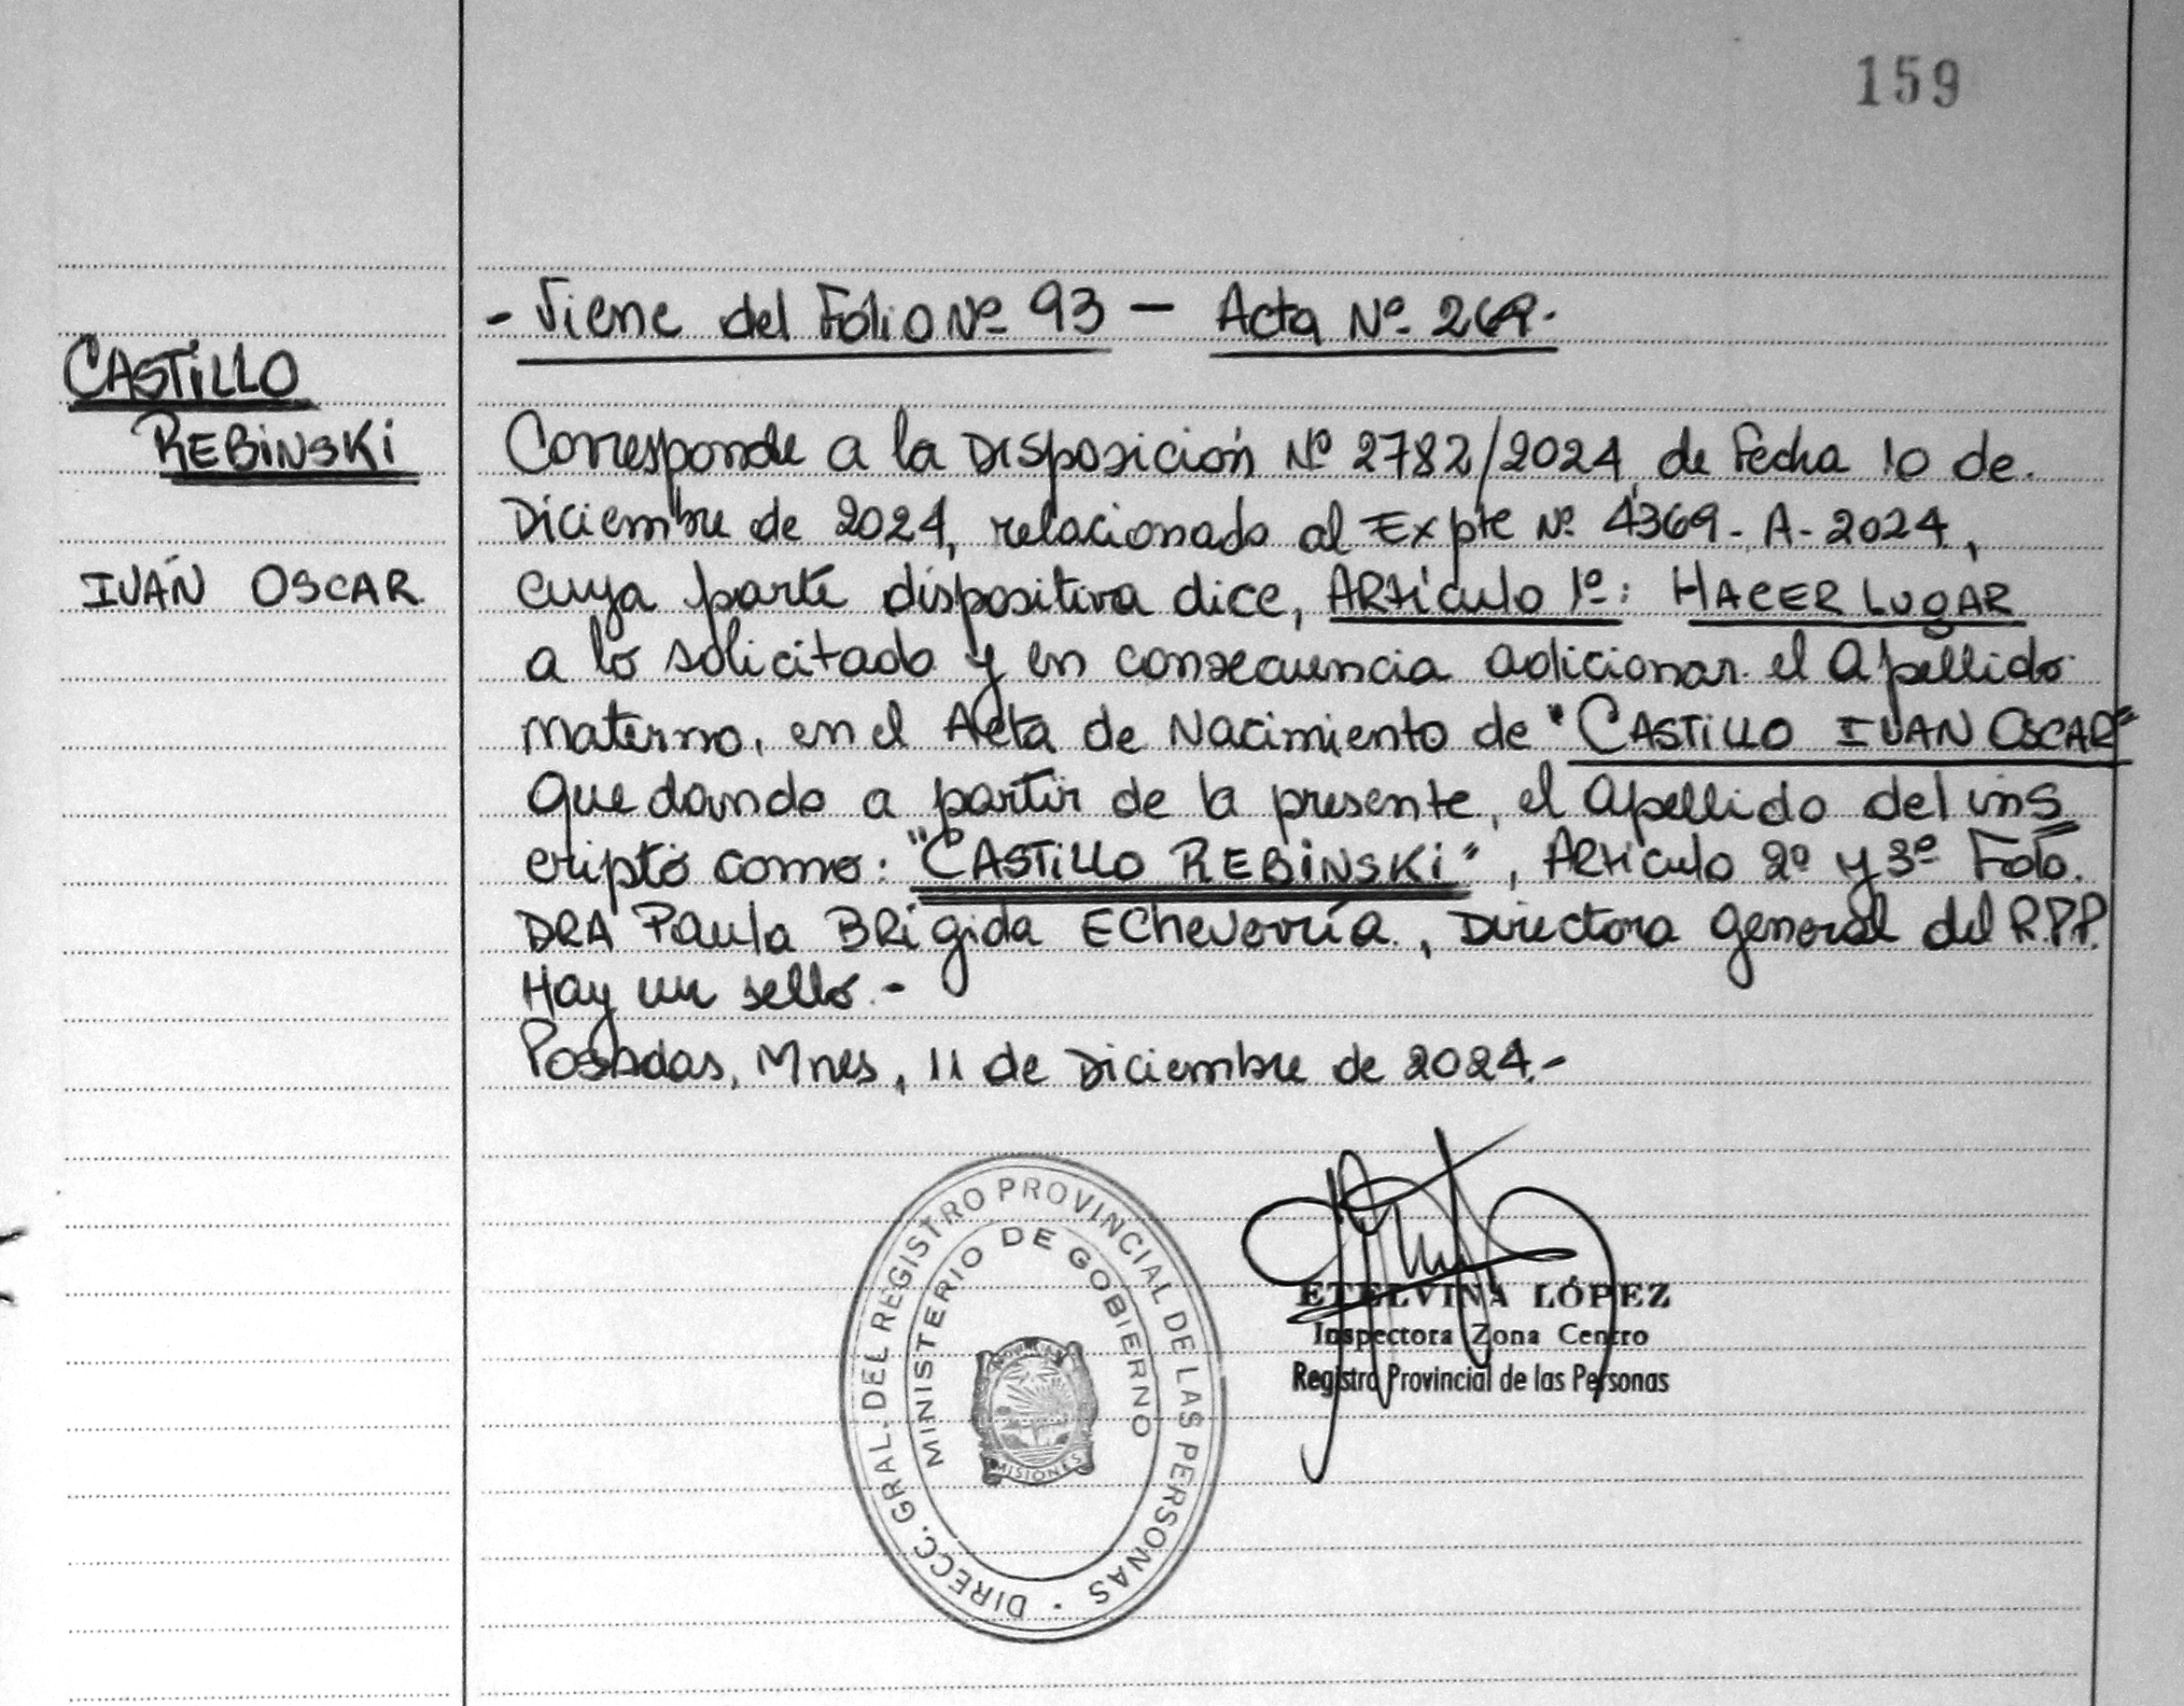 159
- Viene del Folio Nº 93 - Acta Nº 269.-
CASTILLO
REBINSKI
IVÁN OSCAR
Corresponde a la Disposición Nº 2782/2024, de Fecha 10 de
Diciembre de 2024, relacionado al Expte Nº 4369-A-2024,
cuya parte dispositiva dice, Artículo 1º: HACER LUGAR
a lo solicitado y en consecuencia adicionar el Apellido
materno, en el Acta de Nacimiento de "CASTILLO IVAN OSCAR"
Quedando a partir de la presente, el Apellido del ins
cripto como: "CASTILLO REBINSKI", Artículo 2º y 3º Fdo.
DRA Paula Brígida Echeverría, Directora General del R.P.P.
Hay un sello.-
Posadas, Mnes, 11 de Diciembre de 2024.-
DIRECC. GRAL. DEL REGISTRO PROVINCIAL DE LAS PERSONAS
MINISTERIO DE GOBIERNO
MISIONES
ETELVINA LÓPEZ
Inspectora Zona Centro
Registro Provincial de las Personas